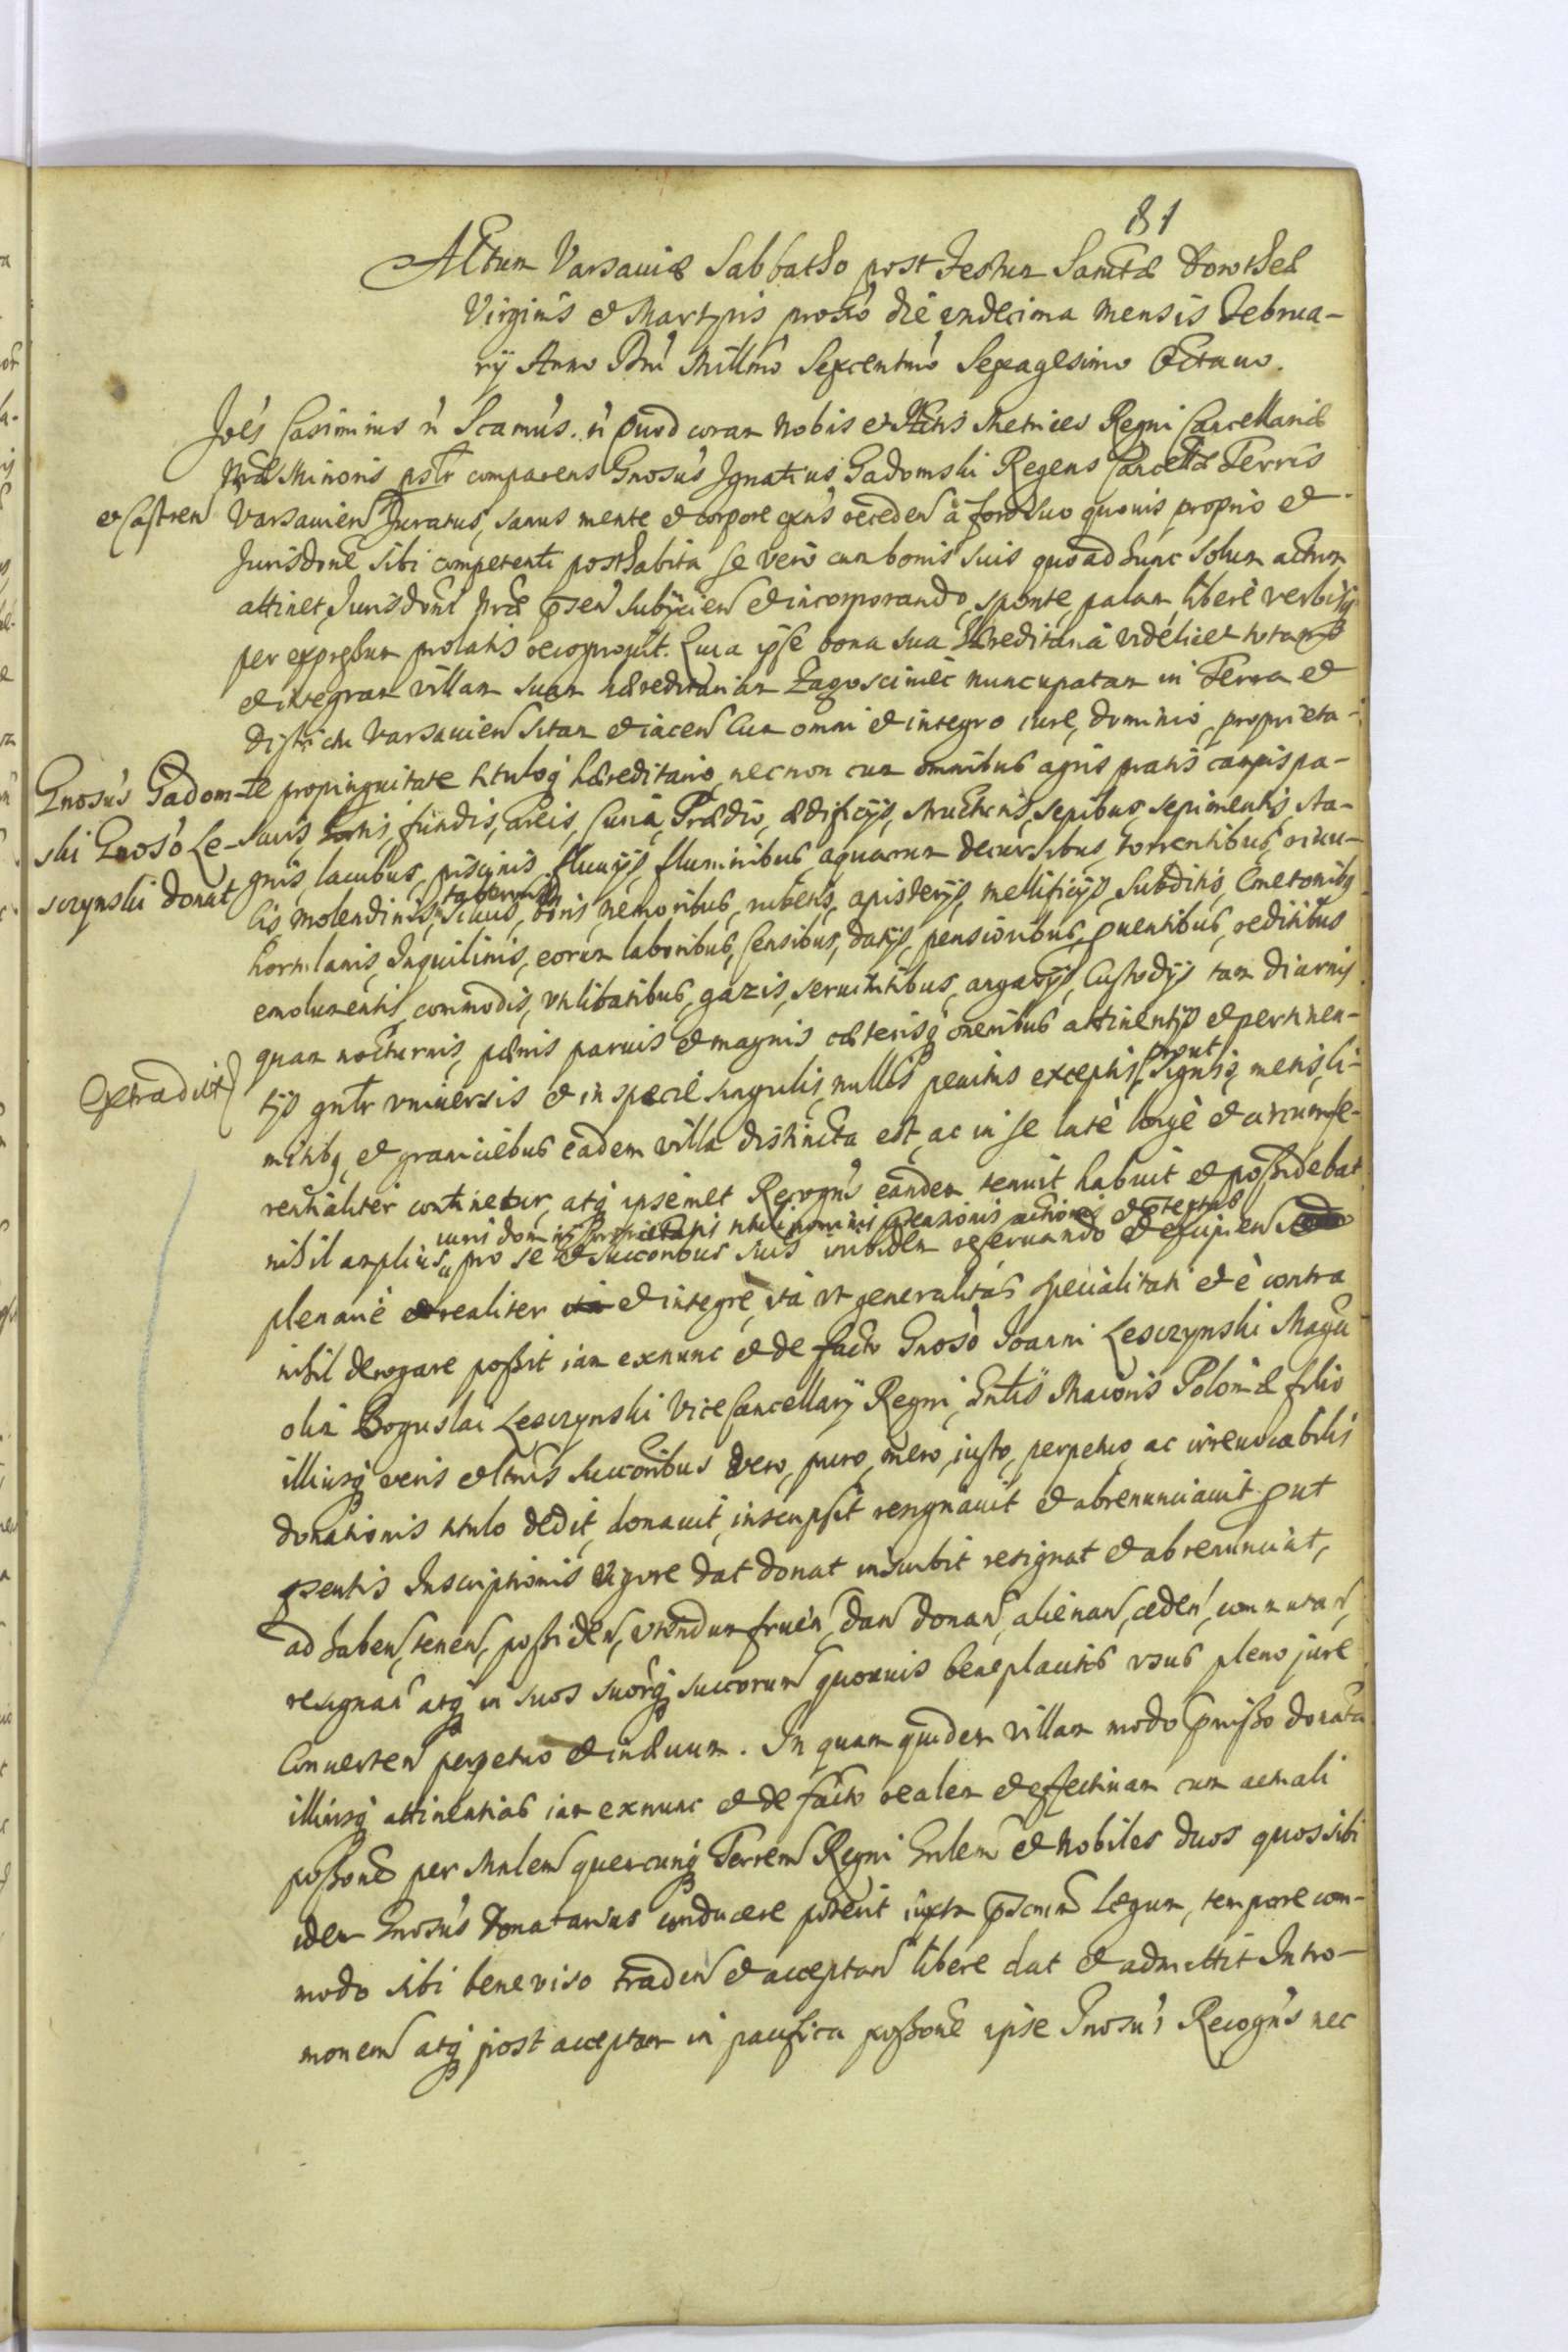 81
Actum Varsaviæ Sabbatho post Festum Sanctæ Dorotheæ
Virginis et Martyris proxo die undecima Mensis Februa-
rij Anno Dni Millmo Sexcentmo Sexagesimo Octavo.
Joës Casimirus n Scamus. n Quod coram Nobis et Actis Metrices Regni Cancellariæ
Nræ Minoris pslr comparens Gnosus Ignatius Gadomski Regens Cancellæ Terris
et Castren Varsavien Juratus, sanus mente et corpore exns receden à foro suo quovis proprio et
Jurisdone sibi competenti posthabita se vero cum bonis suis quoad hunc solum actum
attinet Jurisdoni Nræ psen subijcien et incorporando, sponte, palam libere verbisq
per expressum prolatis recognovit. Quia ipse bona sua hæreditaria videlicet totam
et integram villam suam hæreditariam Zagosciniec nuncupatam in Terra et
Districtu Varsavien sitam et iacen Cum omni et integro iure, dominio, proprieta-
Gnosus Gadom-
ski Gnoso Le-
sczynski donat
te propinquitate tituloq hæreditario, necnon cum omnibus agris pratis campis pa-
scuis hortis, fundis, areis, Curia, Prædio, ædificijs, structuris, sepibus, sepimentis, sta-
gnis, lacubus, piscinis, fluvijs, fluminibus aquarum decursibus, torrentibus, rivu-
lis, molendinis, tabernis, silvis, boris, nemoribus, rubetis, apisterijs, mellificijs, Subditis, Cmetonibq
hortulanis, Inquilinis, eorum laboribus, Censibus, datijs, pensionibus, pventibus, reditibus
emolumentis, commodis, utilitatibus, gazis, servitutibus, angarijs, Custodijs tam diurnis
quam nocturnis, pænis parvis et magnis cæterisq oneribus attinentijs et pertinen-
Extradit
tijs gnlr universis et in specie singulis, nullis penitus exceptis, prout signis, metis, li-
mitibq et graniciebus eadem villa distincta est, ac in se late longe et circumfe-
rentialiter continetur, atq ipsemet Recogns eandem tenuit habuit et possidebat
iuris dominij proprietatis tituli nominis prætensionis actionis et
nihil amplius, pro se et succoribus suis inibidem reservando et excipien
plenarie realiter et integre, ita ut generalitas specialitati et e contra
nihil derogare possit iam exnunc et de facto Gnoso Joanni Lesczynski Magci
olim Boguslai Lesczynski Vice Cancellarij Regni, Gnlis Maioris Poloniæ filio
illiusq veris et ltmis succoribus vero, puro, mero, iusto, perpetuo ac irrevocabilis
donationis titulo dedit, donavit, inscripsit resignavit et abrenunciavit put
psentis Inscriptionis vigore dat donat inscribit resignat et abrenunciat,
ad haben, tenen, possiden, utendum fruen, dan donan, alienan, ceden, commutan,
resignan atq in suos suorq succorum quovis beneplacitos usus pleno jure
Converten perpetuo et in ævum. In quam quidem villam modo pmisso donata
illiusq attinentias iam exnunc et de facto realem et effectivam cum actuali
possone per Mnlem quemcunq Terrem Regni Gnlem et Nobiles duos quos sibi
idem Gnosus Donatarius conducere poterit iuxta Legum, tempore com-
modo sibi bene viso traden et acceptan libere dat et admittit Intro-
monem atq post acceptam in pacifica possone ipse Gnosus Recogns nec